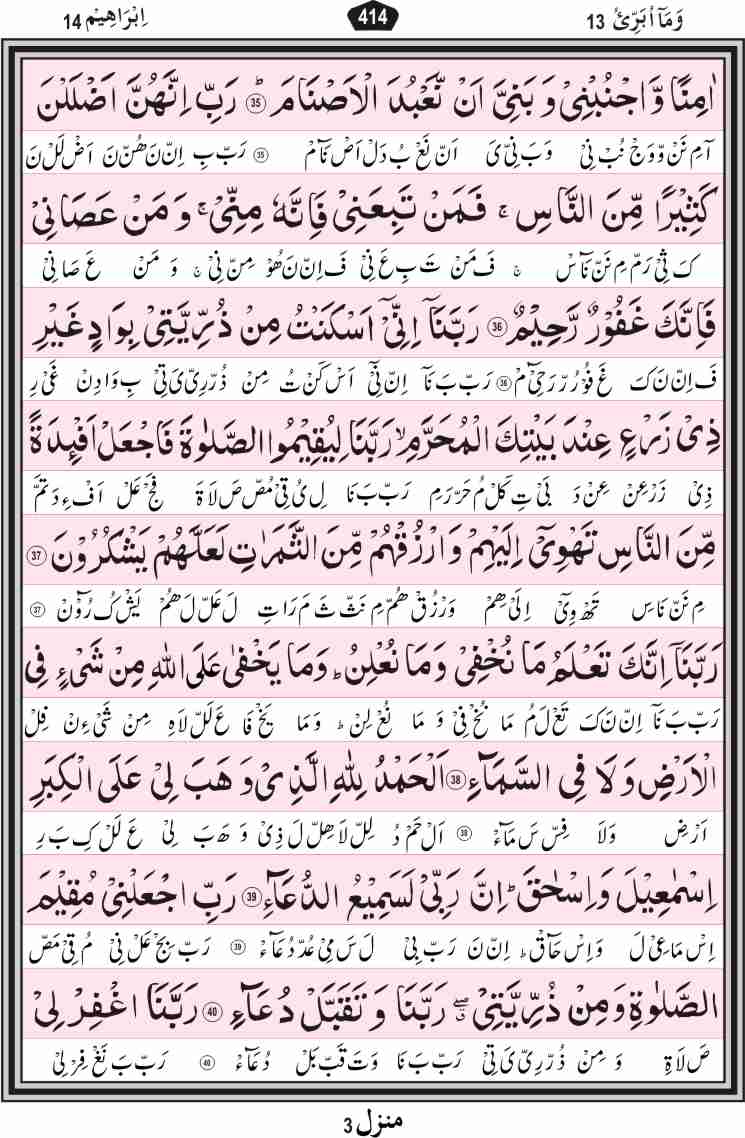 وَمَاۤ اُبَرِّئُ 13 414 اِبْرَاهِيْم 14
اٰمِنًا وَّاجْنُبْنِىْ وَ بَنِىَّ اَنْ نَّعْبُدَ الْاَصْنَامَ ؕ 35 رَبِّ اِنَّهُنَّ اَضْلَلْنَ
آمِ نَنْ وْوَجْ نُبْ نِىْ وَ بَ نِىْ ىَ اَنْ نَعْ بُ دَلْ اَصْ نَاْمْ 35 رَبْ بِ اِنْ نَ هُنْ نَ اَضْ لَلْ نَ
كَثِيْرًا مِّنَ النَّاسِ ۚ فَمَنْ تَبِعَنِىْ فَاِنَّهٗ مِنِّىْ ۚ وَ مَنْ عَصَانِىْ
كَ ثِىْ رَمْ مِ نَنْ نَاْسْ ۚ فَ مَنْ تَ بِ عَ نِىْ فَ اِنْ نَ هُوْ مِنْ نِىْ ۚ وَ مَنْ عَ صَا نِىْ
فَاِنَّكَ غَفُوْرٌ رَّحِيْمٌ 36 رَبَّنَاۤ اِنِّىْۤ اَسْكَنْتُ مِنْ ذُرِّيَّتِىْ بِوَادٍ غَيْرِ
فَ اِنْ نَ كَ غَ فُوْ رُرْ رَ حِىْٓ مْ 36 رَبْ بَ نَاۤ اِنْ نِىْٓ اَسْ كَنْ تُ مِنْ ذُرْ رِىْ ىَ تِىْ بِ وَا دِنْ غَىْ رِ
ذِىْ زَرْعٍ عِنْدَ بَيْتِكَ الْمُحَرَّمِۙ رَبَّنَا لِيُقِيْمُوا الصَّلٰوةَ فَاجْعَلْ اَفْئِدَةً
ذِىْ زَرْ عِنْ عِنْ دَ بَىْ تِ كَلْ مُ حَرْ رَمِ رَبْ بَ نَا لِ ىُ قِىْ مُصْ صَ لَا ةَ فَجْ عَلْ اَفْ ءِ دَ تَمْ
مِّنَ النَّاسِ تَهْوِىْۤ اِلَيْهِمْ وَارْزُقْهُمْ مِّنَ الثَّمَرٰتِ لَعَلَّهُمْ يَشْكُرُوْنَ 37
مِ نَنْ نَاسِ تَهْ وِىْٓ اِلَىْ هِمْ وَرْ زُقْ هُمْ مِ نَثْ ثَ مَ رَاتِ لَ عَلْ لَ هُمْ يَشْ كُ رُوْٓنْ 37
رَبَّنَاۤ اِنَّكَ تَعْلَمُ مَا نُخْفِىْ وَمَا نُعْلِنُ ؕ وَمَا يَخْفٰى عَلَى اللّٰهِ مِنْ شَىْءٍ فِى
رَبْ بَ نَاۤ اِنْ نَ كَ تَعْ لَ مُ مَا نُخْ فِىْ وَ مَا نُعْ لِنْ ؕ وَ مَا يَخْ فَا عَ لَلْ لَاهِ مِنْ شَىْ ءِنْ فِلْ
الْاَرْضِ وَلَا فِى السَّمَآءِ 38 اَلْحَمْدُ لِلّٰهِ الَّذِىْ وَهَبَ لِىْ عَلَى الْكِبَرِ
اَرْضِ وَلَا فِسْ سَ مَآءْ 38 اَلْ حَمْ دُ لِلْ لَا هِلْ لَ ذِىْ وَ هَ بَ لِىْ عَ لَلْ كِ بَ رِ
اِسْمٰعِيْلَ وَاِسْحٰقَ ؕ اِنَّ رَبِّىْ لَسَمِيْعُ الدُّعَآءِ 39 رَبِّ اجْعَلْنِىْ مُقِيْمَ
اِسْ مَا عِىْ لَ وَ اِسْ حَاْقْ ؕ اِنْ نَ رَبْ بِىْ لَ سَ مِىْ عُدْ دُ عَآءْ 39 رَبْ بِجْ عَلْ نِىْ مُ قِىْ مَصْ
الصَّلٰوةِ وَمِنْ ذُرِّيَّتِىْ ۖۗ رَبَّنَا وَتَقَبَّلْ دُعَآءِ 40 رَبَّنَا اغْفِرْ لِىْ
صَ لَاةِ وَ مِنْ ذُرْ رِىْ ىَ تِىْ رَبْ بَ نَا وَ تَ قَبْ بَلْ دُ عَآءْ 40 رَبْ بَ نَغْ فِرْ لِىْ
منزل 3